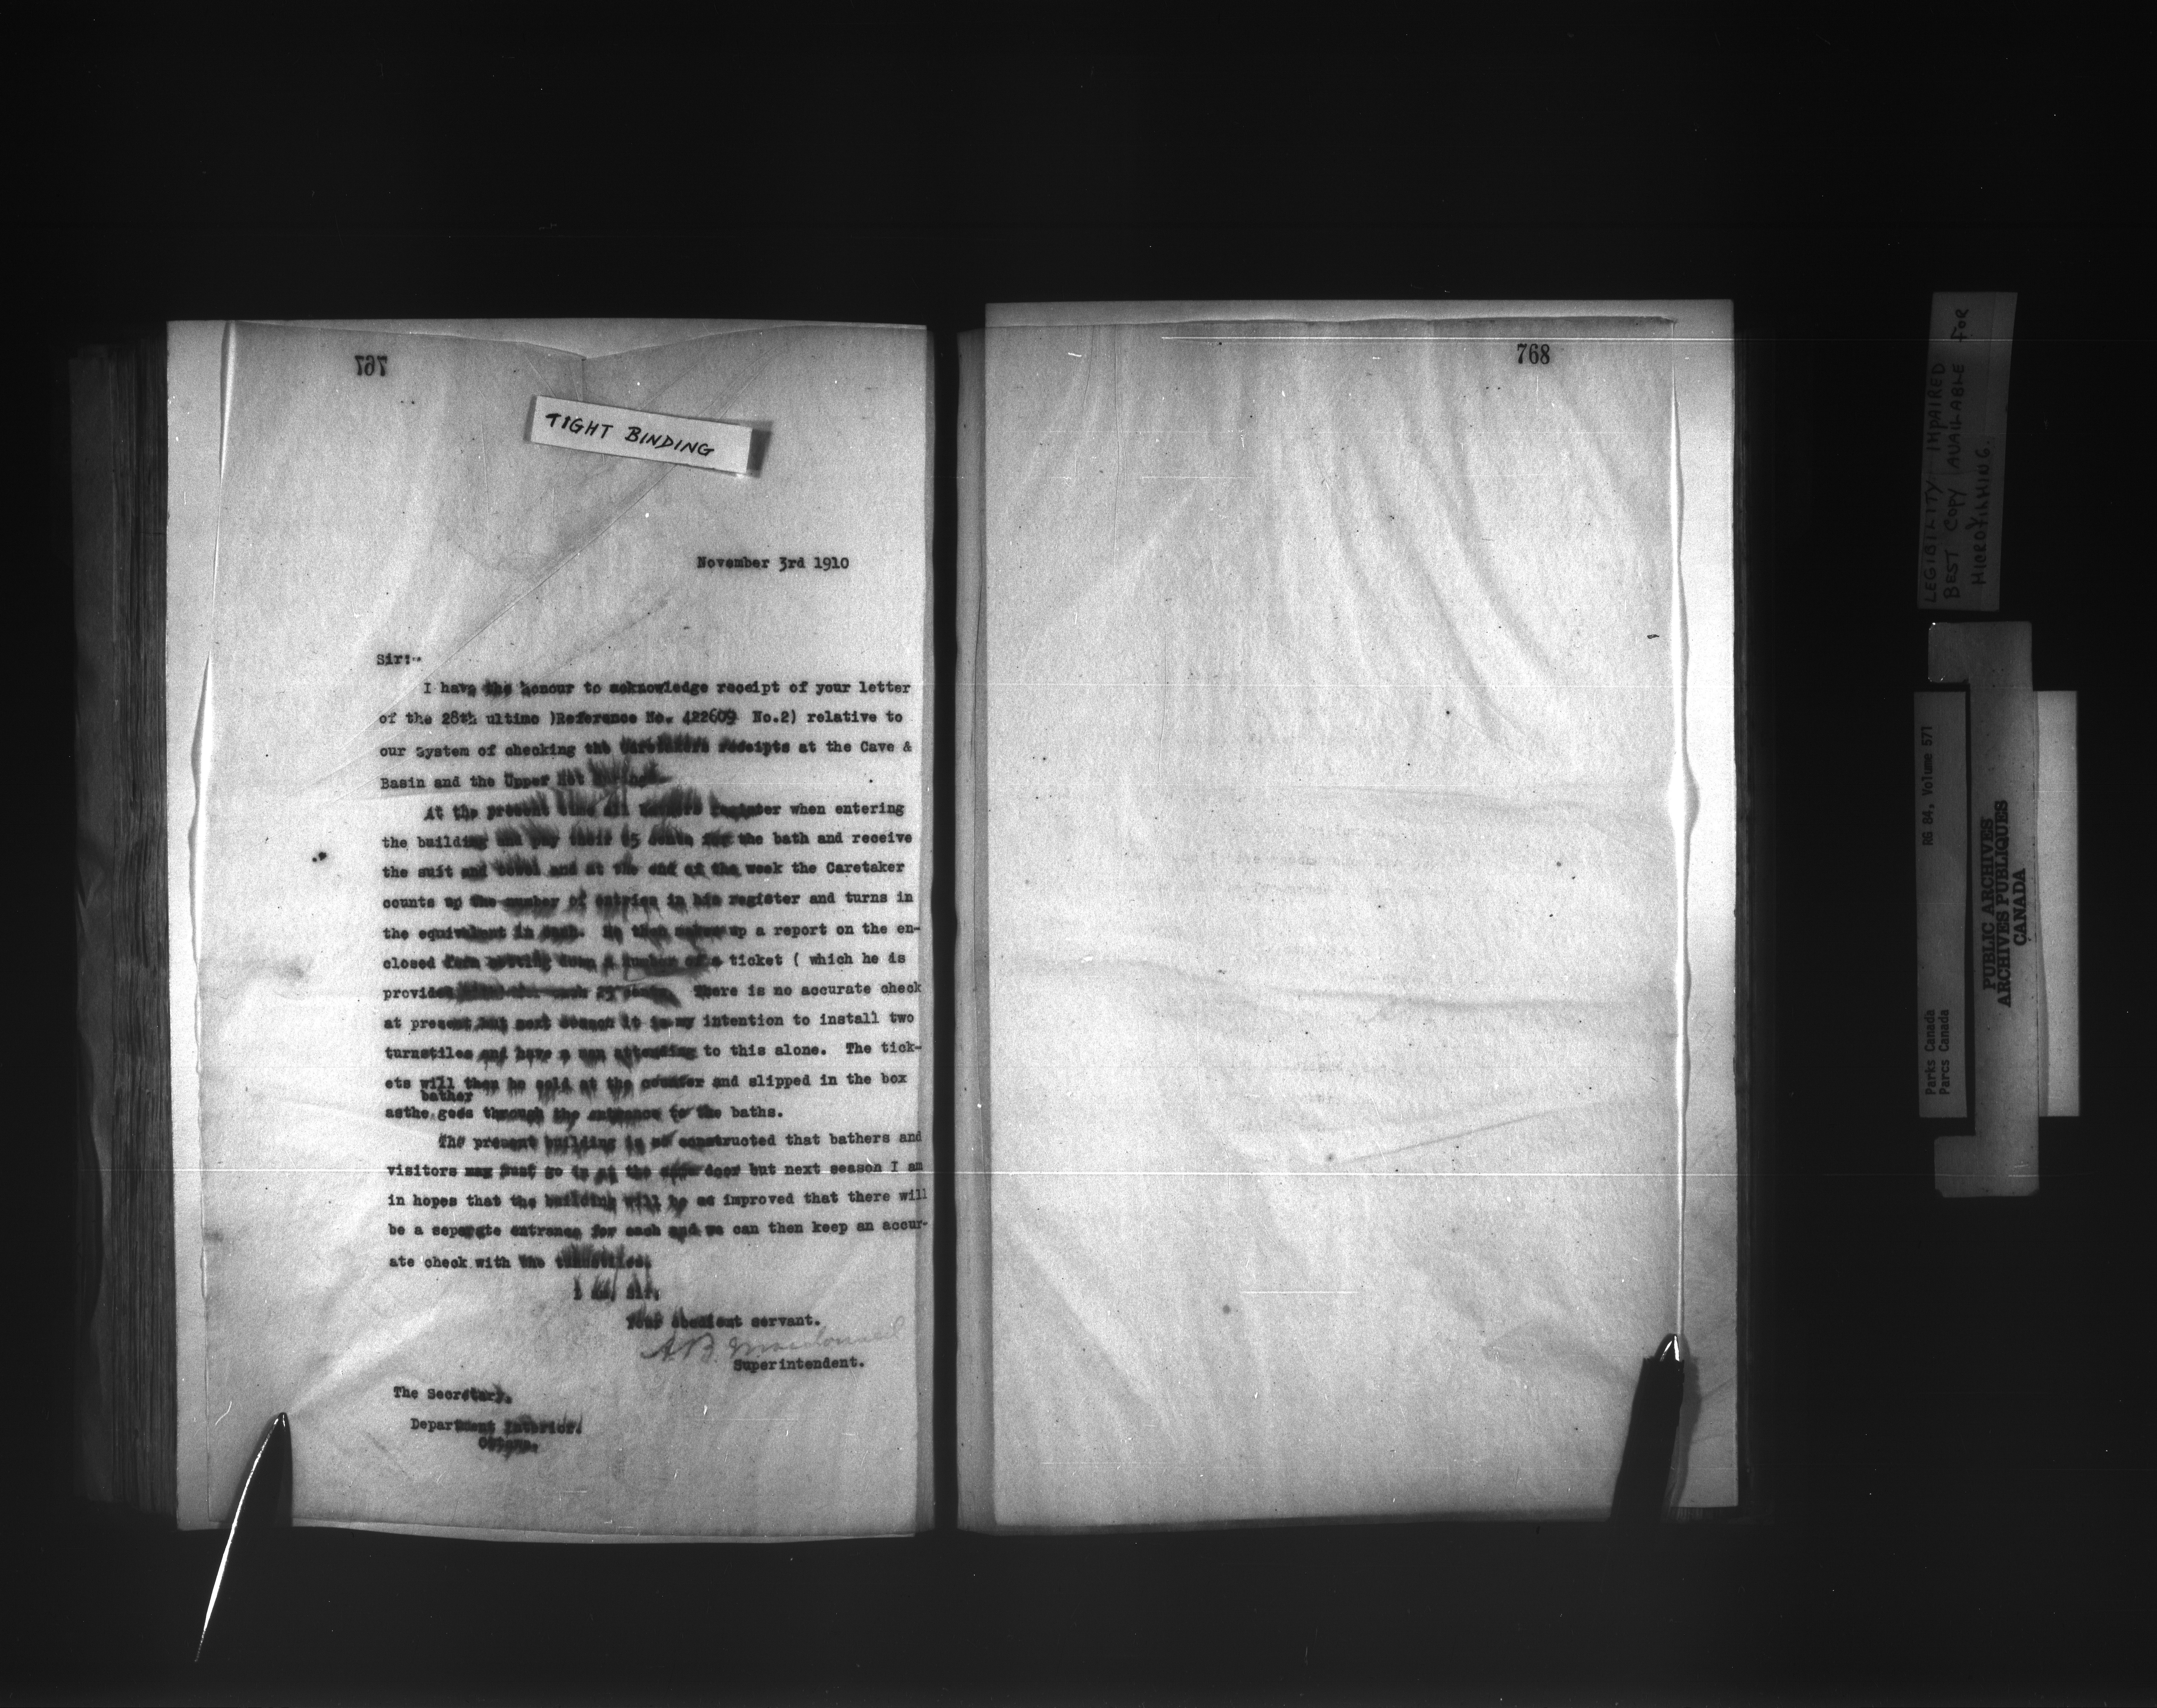 767
TIGHT BINDING
November 3rd 1910
Sir:-
I have the honour to acknowledge receipt of your letter
of the 28th ultimo )Reference No. 422609 No.2) relative to
our system of checking the Caretakers receipts at the Cave &
Basin and the Upper Hot Springs.
At the present time all bathers register when entering
the building and pay their 25 cents for the bath and receive
the suit and towel and at the end of the week the Caretaker
counts up the number of entries in his register and turns in
the equivalent in cash. He then makes up a report on the en-
closed form putting down a number of a ticket ( which he is
provided each 25 cents. There is no accurate check
at present but next season it is my intention to install two
turnstiles and have a man attending to this alone. The tick-
ets will then be sold at the counter and slipped in the box
bather
asthe goes through the entrance to the baths.
The present building is so constructed that bathers and
visitors may must go in at the same door but next season I am
in hopes that the building will be so improved that there will
be a separgte entrance for each and we can then keep an accur-
ate check with the turnstiles.
I am, Sir,
Your obedient servant.
A.B. Macdonald
Superintendent.
The Secretary,
Department Interior.
Ottawa.
768
LEGIBILITY IMPAIRED
BEST COPY AVAILABLE FOR
MICROFILMING.
RG 84, Volume 571
Parks Canada
Parcs Canada
PUBLIC ARCHIVES
ARCHIVES PUBLIQUES
CANADA